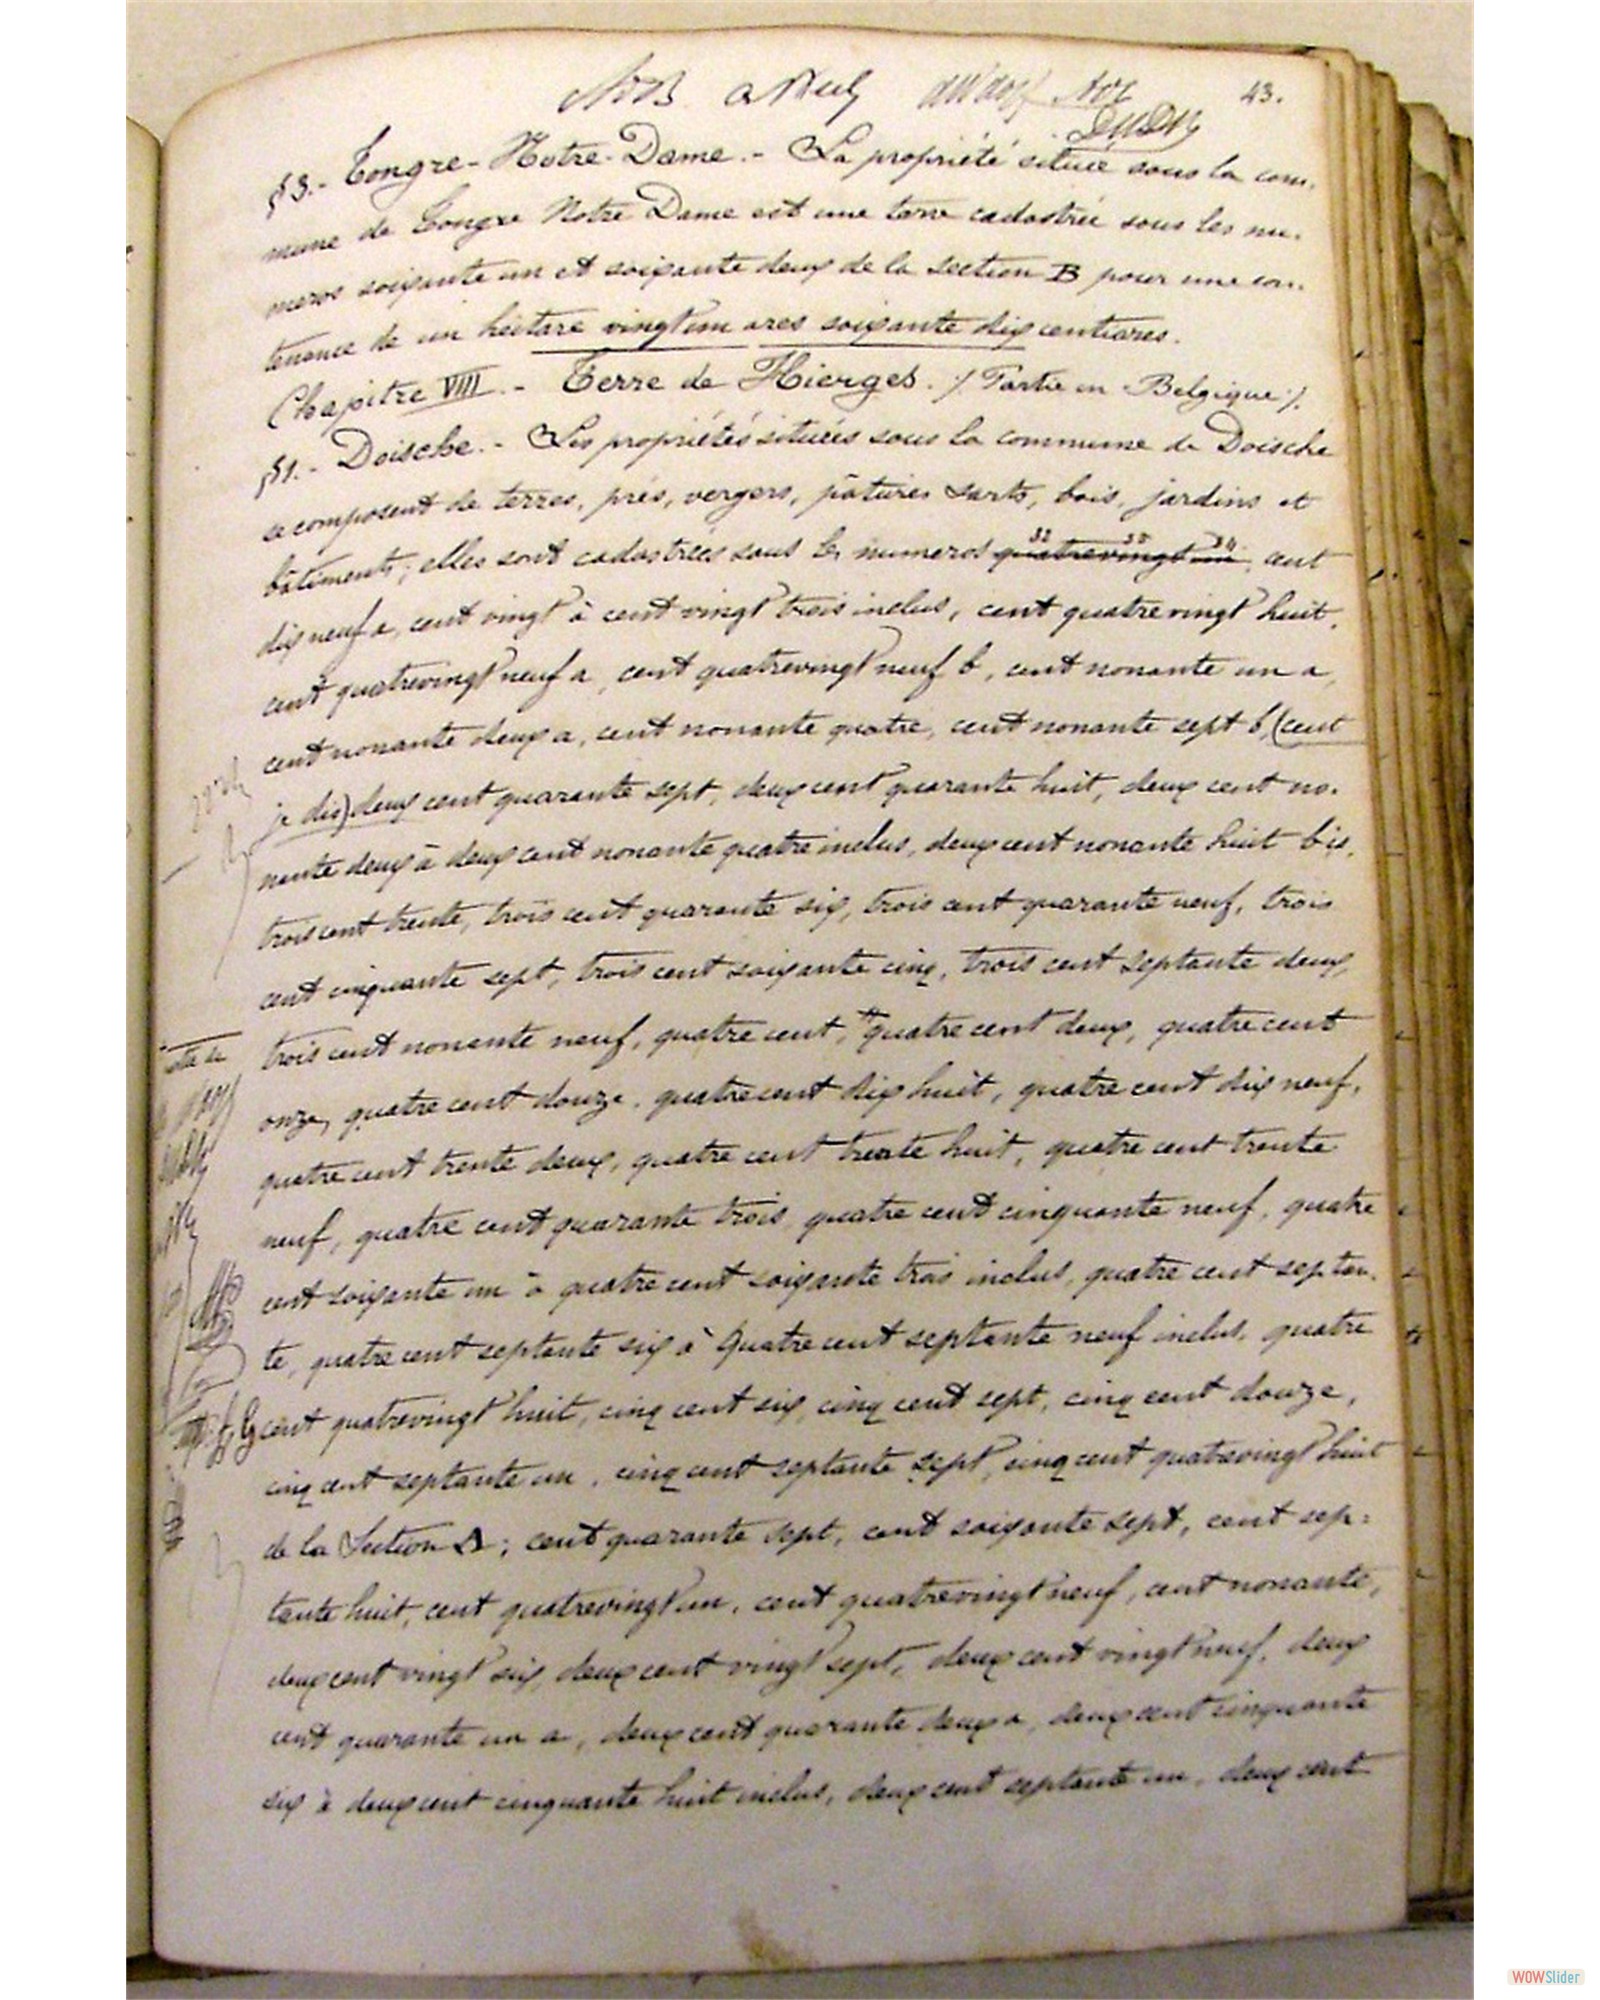 43.
§3.- Tongre-Notre-Dame.- La propriété située sous la com-
mune de Tongre Notre Dame est une terre cadastrée sous les nu-
meros soixante un et soixante deux de la section B pour une con-
tenance de un hectare vingt un ares soixante dix centiares.
Chapitre VIII.- Terre de Hierges. / Partie en Belgique /.
§1.- Doische.- Les propriétés situées sous la commune de Doische
se composent de terres, prés, vergers, pâtures sarts, bois, jardins et
bâtiments; elles sont cadastrées sous les numeros quatrevingt un, cent
dix neuf a, cent vingt à cent vingt trois inclus, cent quatrevingt huit,
cent quatrevingt neuf a, cent quatrevingt neuf b, cent nonante un a,
cent nonante deux a, cent nonante quatre, cent nonante sept b, (cent
je dis) deux cent quarante sept, deux cent quarante huit, deux cent no-
nante deux à deux cent nonante quatre inclus, deux cent nonante huit bis,
trois cent trente, trois cent quarante six, trois cent quarante neuf, trois
cent cinquante sept, trois cent soixante cinq, trois cent septante deux,
trois cent nonante neuf, quatre cent, quatre cent deux, quatre cent
onze, quatre cent douze, quatre cent dix huit, quatre cent dix neuf,
quatre cent trente deux, quatre cent trente huit, quatre cent trente
neuf, quatre cent quarante trois, quatre cent cinquante neuf, quatre
cent soixante un à quatre cent soixante trois inclus, quatre cent septan-
te, quatre cent septante six à Quatre cent septante neuf inclus, quatre
cent quatrevingt huit, cinq cent six, cinq cent sept, cinq cent douze,
cinq cent septante un, cinq cent septante sept, cinq cent quatrevingt huit
de la Section A; cent quarante sept, cent soixante sept, cent sep-
tante huit, cent quatrevingt un, cent quatrevingt neuf, cent nonante,
deux cent vingt six, deux cent vingt sept, deux cent vingt neuf, deux
cent quarante un a, deux cent quarante deux a, deux cent cinquante
six à deux cent cinquante huit inclus, deux cent septante un, deux cent
WOWSlider